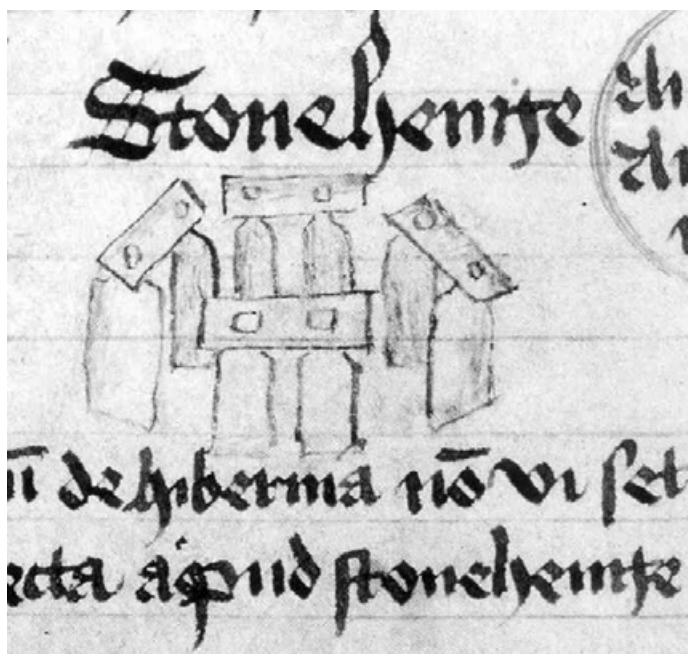 Stonehenge
de hibernia nō vi set
ecta apud stonehenge